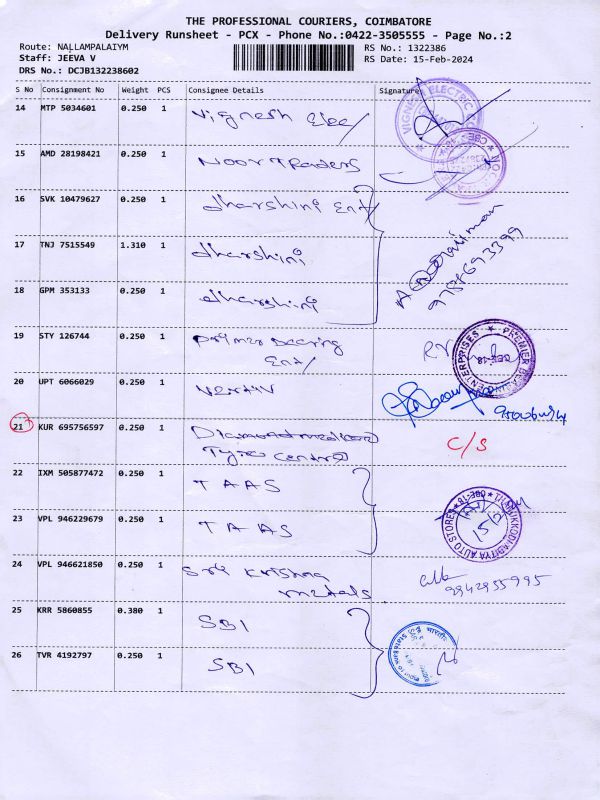 THE PROFESSIONAL COURIERS, COIMBATORE
Delivery Runsheet - PCX - Phone No.:0422-3505555 - Page No.:2
Route: NALLAMPALAIYM
RS No.: 1322386
Staff: JEEVA V
RS Date: 15-Feb-2024
DRS No.: DCJB132238602
S No Consignment No Weight PCS Consignee Details Signature
14 MTP 5034601 0.250 1 Vignesh Elec/
15 AMD 28198421 0.250 1 Noor Traders
16 SVK 10479627 0.250 1 dharshini Ent/
17 TNJ 7515549 1.310 1 dharshini
18 GPM 353133 0.250 1 dharshini
9787693399
19 STY 126744 0.250 1 Primer Bearing
Ent/
PREMIER ENTERPRISES
20 UPT 6066029 0.250 1
21 KUR 695756597 0.250 1 C/S
Tyre Centre
22 IXM 505877472 0.250 1 TAAS
23 VPL 946229679 0.250 1 TAAS
AUTO STORES
24 VPL 946621850 0.250 1 Sri Krishna
metals
9942955995
25 KRR 5860855 0.380 1 SBI
26 TVR 4192797 0.250 1 SBI